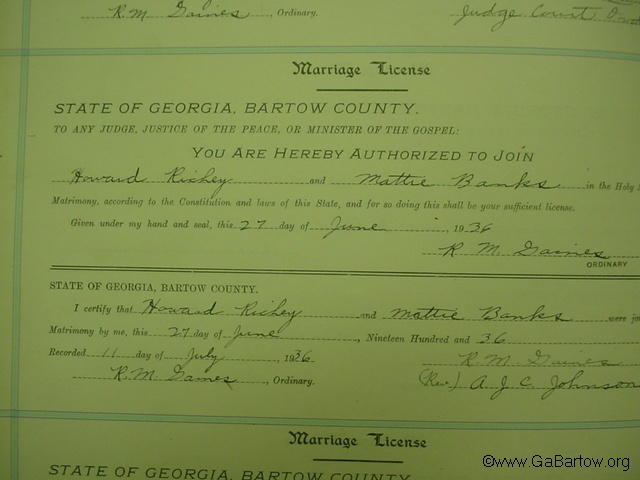 R. M. Gaines, Ordinary. Judge Court
Marriage License
STATE OF GEORGIA, BARTOW COUNTY.
TO ANY JUDGE, JUSTICE OF THE PEACE, OR MINISTER OF THE GOSPEL:
YOU ARE HEREBY AUTHORIZED TO JOIN
Howard Richey and Mattie Banks in the Holy
Matrimony, according to the Constitution and laws of this State, and for so doing this shall be your sufficient license.
Given under my hand and seal, this 27 day of June 1936
R. M. Gaines
ORDINARY
STATE OF GEORGIA, BARTOW COUNTY.
I certify that Howard Richey and Mattie Banks were jo
Matrimony by me, this 27 day of June, Nineteen Hundred and 36
Recorded 11 day of July 1936 R. M. Gaines
R. M. Gaines, Ordinary. (Rev.) A. J. C. Johnson
Marriage License
STATE OF GEORGIA, BARTOW COUNTY.
©www.GaBartow.org